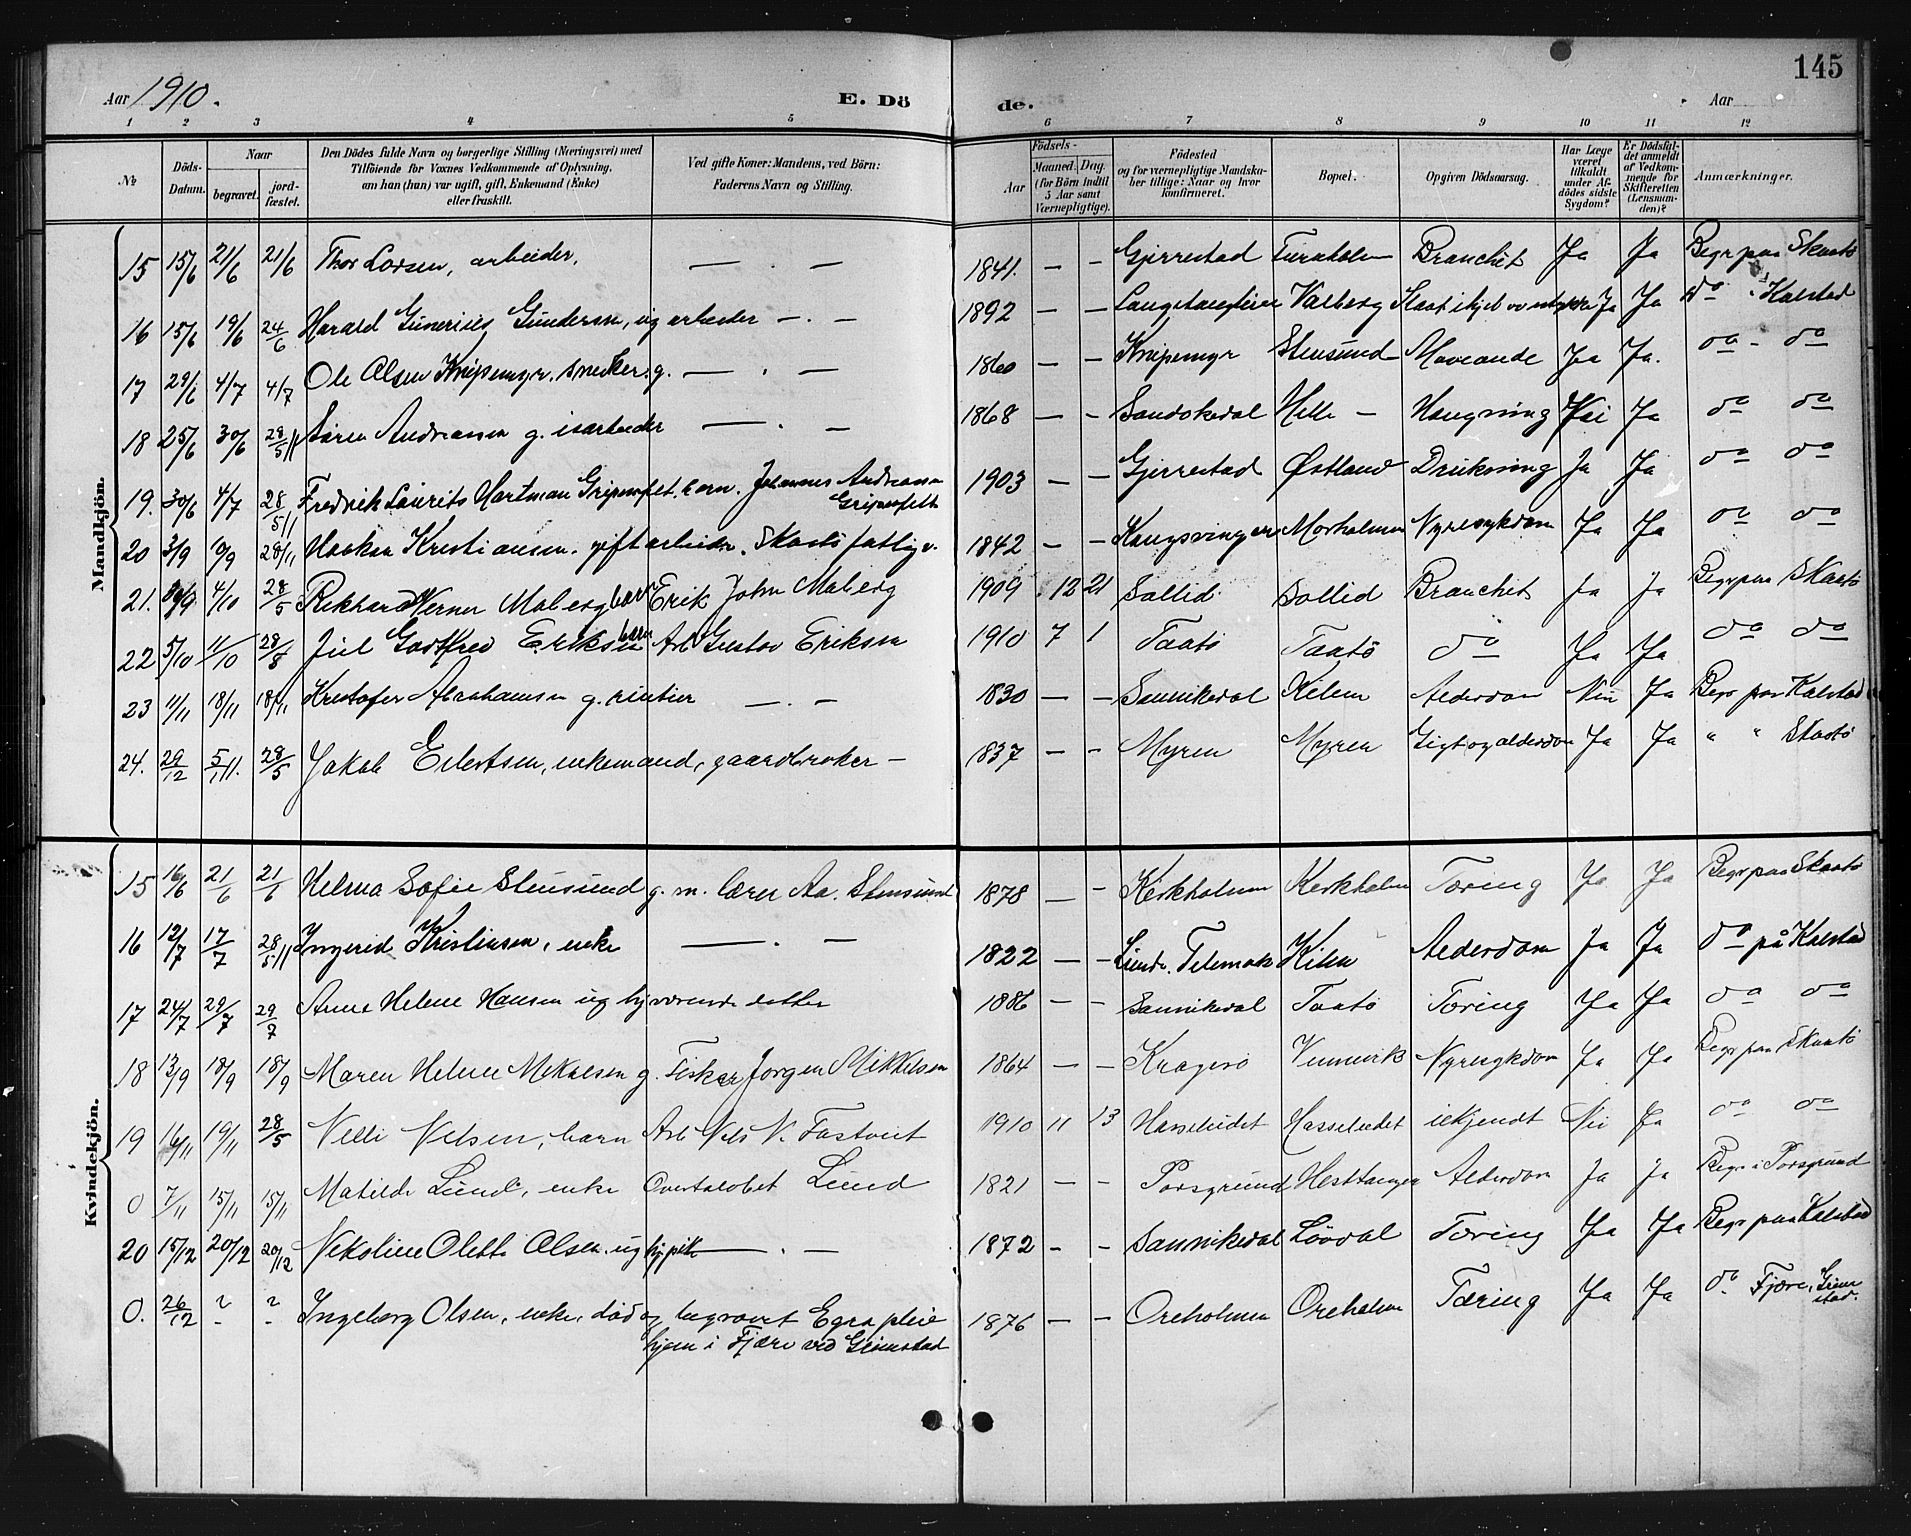 145
Aar 1910.
E. Dö de.
Aar
1 2 3 4 5 6 7 8 9 10 11 12
№ Döds-Datum. Naar begravet. jord-fæstet. Den Dödes fulde Navn og borgerlige Stilling (Næringsvei) med Tilföiende for Voxnes Vedkommende af Oplysning, om han (hun) var ugift, gift, Enkemand (Enke) eller fraskilt. Ved gifte Koner: Mandens, ved Börn: Faderens Navn og Stilling. Födsels- Aar Maaned. Dag. (for Börn indtil 5 Aar samt Værnepligtige). Födested og for værnepligtige Mandskaber tillige: Naar og hvor konfirmeret. Bopæl. Opgiven Dödsaarsag. Har Læge været tilkaldt under Afdödes sidste Sygdom? Er Dödsfaldet anmeldt af Vedkommende for Skifteretten (Lensmanden)? Anmærkninger.
Mandkjön.
15 15/6 21/6 21/6 Thor Larsen, arbeider, — . — 1841. — — Gjerrestad Furuholm Branchit Ja Ja Begr paa Skaatö
16 15/6 19/6 24/6 Harald Gunerius Gundersen, ug arbeider — . — 1892 — — Valberg Ja Ja do Kalstad
17 29/6 4/7 4/7 Ole Olsen Knipemyr. snecker. g. — . — 1860 — — Knipemyr Stensund Mavesnde Ja Ja. do - do
18 25/6 30/6 28/5 11 Søren Andreassen g. isarbeider — . — 1868 — — Sandokedal Helle — Hængning Nei Ja do do
19. 30/6 4/7 28/5 11 Fredrik Laurits Hartman Gripenfelt. barn. Johannes Andreassen Gripenfelt 1903 — — Gjerrestad Østland Drukning Ja Ja do do
20 3/9 10/9 28/11 Haakon Kristiansen. gift arbeider. Skaatö fattigv. 1842 — — Kongsvinger Morholmen Nyresykdom Ja Ja do do
21. 30/9 4/10 28/5 Rikhard Werner Moberg barn Erik John Moberg 1909 12 21 Sollid Sollid Branchit Ja Ja Begr paa Skaatö
22 5/10 11/10 28/8 Juel Godtfred Eriksen barn Arb Gustav Eriksen 1910 7 1 Taatö Taatö do Ja Ja do do
23 11/11 18/11 18/11 Kristofer Abrahamsen g. rentier — . — 1830 — — Sannikedal Kilen Alderdom Nei Ja Begr paa Kalstad
24. 29/12 5/1 11. 28/5 Jakob Eilertsen, enkemand, gaardbruker — 1837 — — Myren Myren Gigt og alderdom Ja Ja " " Skaatö
Kvindekjön.
15 16/6 21/6 21/6 Helma Sofie Stensund g. m. lærer Aa. Stensund 1878 — — Kirkholmen Kirkholm Tæring Ja Ja Begr paa Skaatö
16 12/7 17/7 28/5 11 Ingerid Kristensen, enke — . — 1822 — — Lunde. Telemak Kilen Alderdom Ja Ja do på Kalstad
17 24/7 29/7 29/7 Anne Helene Hansen ug hjværende datter 1886 — — Sannikedal Taatö Tæring Ja Ja do do
18 13/9 18/9 18/9 Maren Helene Mikalsen g. Fisker Jørgen Mikkelsen 1864 — — Kragerö Vinnevik Nyresykdom Ja Ja Begr paa Skaatö
19 16/11 19/11 28/5 Nelli Nilsen, barn Arb Nils N. Tastveit 1910 11 13 Hasseludet Hasseludet ukjendt Nei Ja do do
0 7/11 15/11 15/11 Matilde Lund, enke Overtoldbet Lund 1821 — — Porsgrund Hesttangen Alderdom Ja Ja Begr i Porsgrund
20 15/12 20/12 20/12 Nikoline Oletti Olsen. ug hj pike — . — 1872 - - Sannikedal Lövdal Tæring Ja Ja Begr paa Kalstad
0. 26/12 ? ? Ingeborg Olsen, enke, død og begravet Egra pleie 1876 — — Oreholmen Oreholm Tæring Ja Ja do Fjære, Grimstad.
hjem i Fjære ved Grimstad